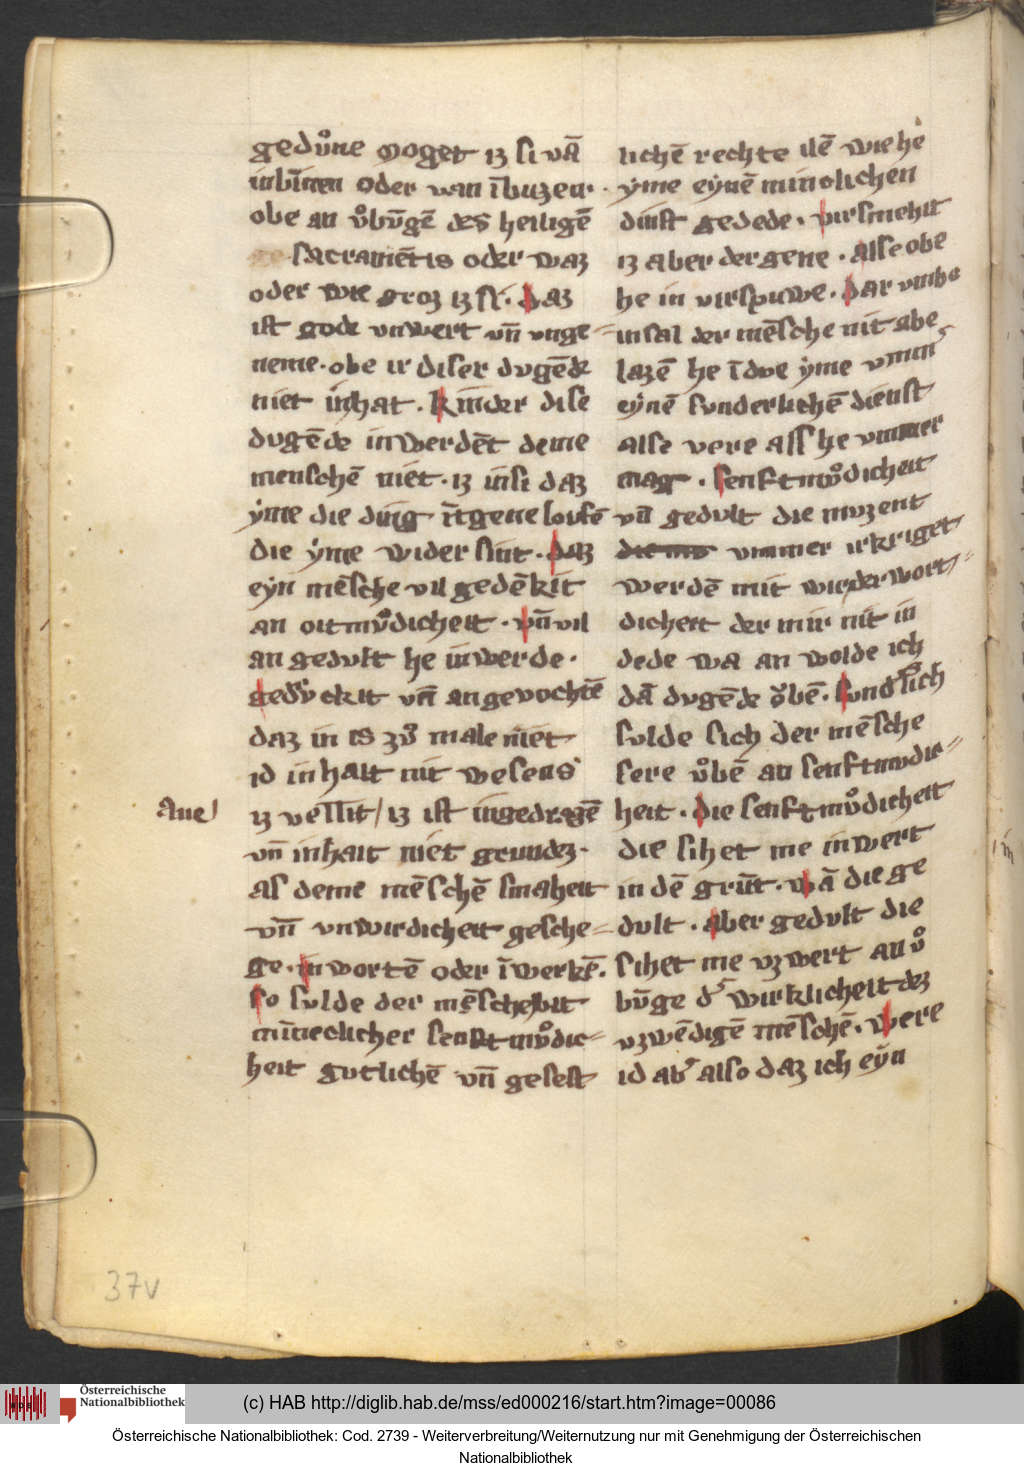 gedůne moget iz si vā
inbīnen oder van ībuzen
obe an ůbūgē des heiligē
sacramētis oder waz
oder wie groz iz si. daz
ist gode vnwert vn̄ vnge
neme. obe ir diser dugēde
niet inhat. kinder dise
dugēde inwerdēt deme
menschē niet. iz insi daz
ẏme die ding ītgene loufē
die ẏme wider sint. daz
eẏn mēsche vil gedēkit
an oitmůdicheit. vn̄ vil
an gedult he inwerde.
vn̄ angevochtē
daz in is zů male niet
id inhait nit wesens
aue
iz vellit / iz ist ingedragē
vn̄ inhait niet grundez.
als deme mēschē smaheit
vn̄ vnwirdicheit gesche
ge. in wortē oder īwerkē.
so sulde der mēsche
mīneclicher senftmůdic
heit gutlichē vn̄ gesest
lichē rechte ilē wie he
ẏme eẏnē minclichen
dinst gedede. virsmehit
iz aber der gene. alse obe
he in virspuwe. dar vmbe
insal der mēsche nit abe
lazē he īdoe ẏme vmm͛
eẏnē sunderlichē dienst
alse vere als he vmmer
mag. senftmůdicheit
vn̄ gedult die muzent
vmmer irkriget
werdē mit widerwort
dicheit der mir nit in
dede wa an wolde ich
dā dugēde ůbē.
sulde sich der mēsche
sere ůbē an senftmudic
heit. die senftmůdicheit
die sihet me inwert
in dē grūt. wā die ge
dult. aber gedult die
sihet me vzwert an ů
būge d͛ wirklicheit dez
vzwēdigē mēschē. were
id ab͛ also daz ich eẏn
37v
Österreichische
Nationalbibliothek
(c) HAB http://diglib.hab.de/mss/ed000216/start.htm?image=00086
Österreichische Nationalbibliothek: Cod. 2739 - Weiterverbreitung/Weiternutzung nur mit Genehmigung der Österreichischen
Nationalbibliothek